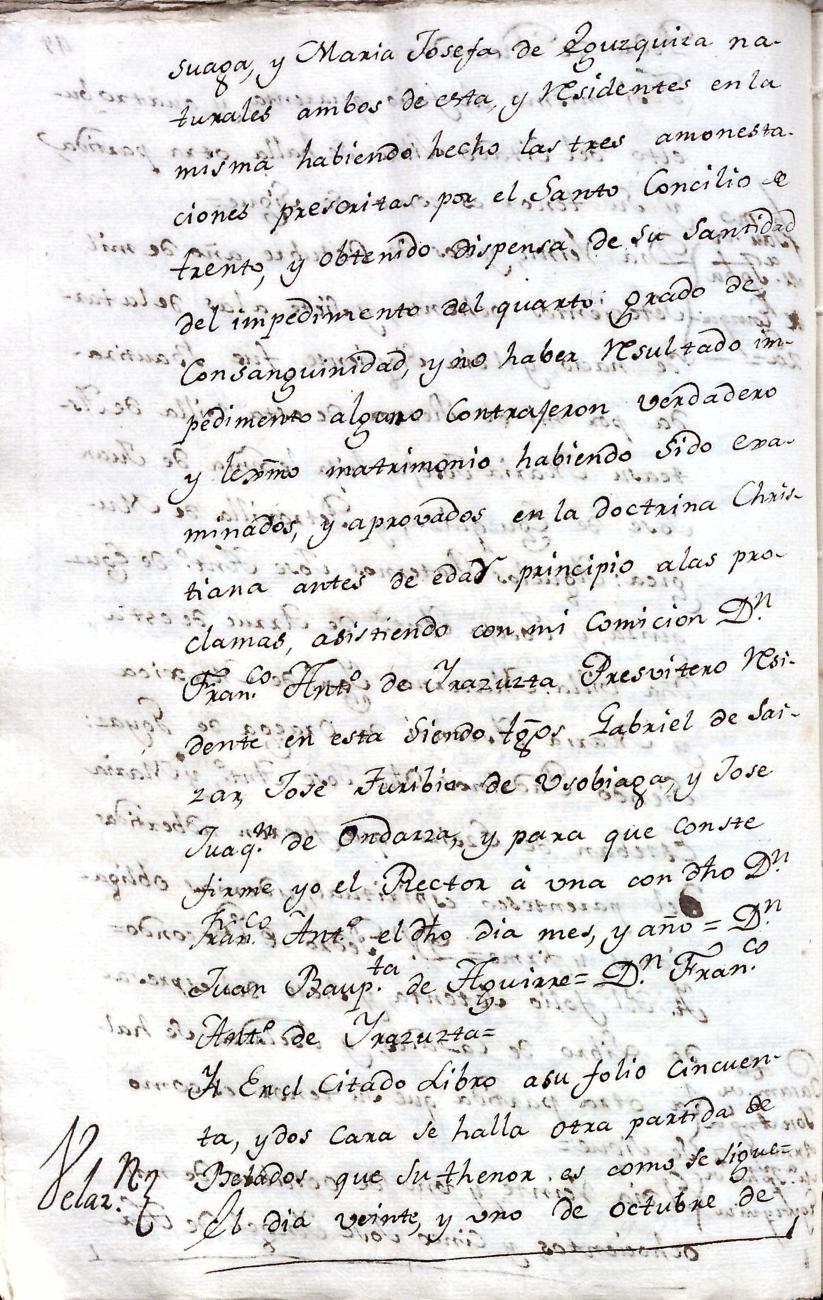 suaga, y Maria Josefa de Eguzquiza na-
turales ambos de esta, y Residentes en la
misma habiendo hecho las tres amonesta-
ciones prescritas por el Santo Concilio de
trento, y obtenido dispensa de su Santidad
del impedimento del quarto grado de
Consanguinidad, y no haber Resultado im-
pedimento alguno Contrajeron verdadero
y lexmo matrimonio habiendo sido exa-
minados, y aprovados en la doctrina Chris-
tiana antes de edar principio a las pro-
clamas, asistiendo con mi Comicion Dn
Franco Anto de Yrazuzta Presvitero Resi-
dente en esta Siendo tgos Gabriel de Sai-
zar, Jose Turibio de Usobiaga, y Jose
Juaqn de Ondarra, y para que conste
firme yo el Rector à una con dho Dn
Franco Anto el dho dia mes, y año = Dn
Juan Baupta de Aguirre = Dn Franco
Anto de Yrazuzta =
Yt En el Citado Libro a su folio Cincuen-
ta, y dos Cara se halla otra partida de
Belados que su thenor es como se sigue =
Velan
El dia veinte, y uno de octubre de